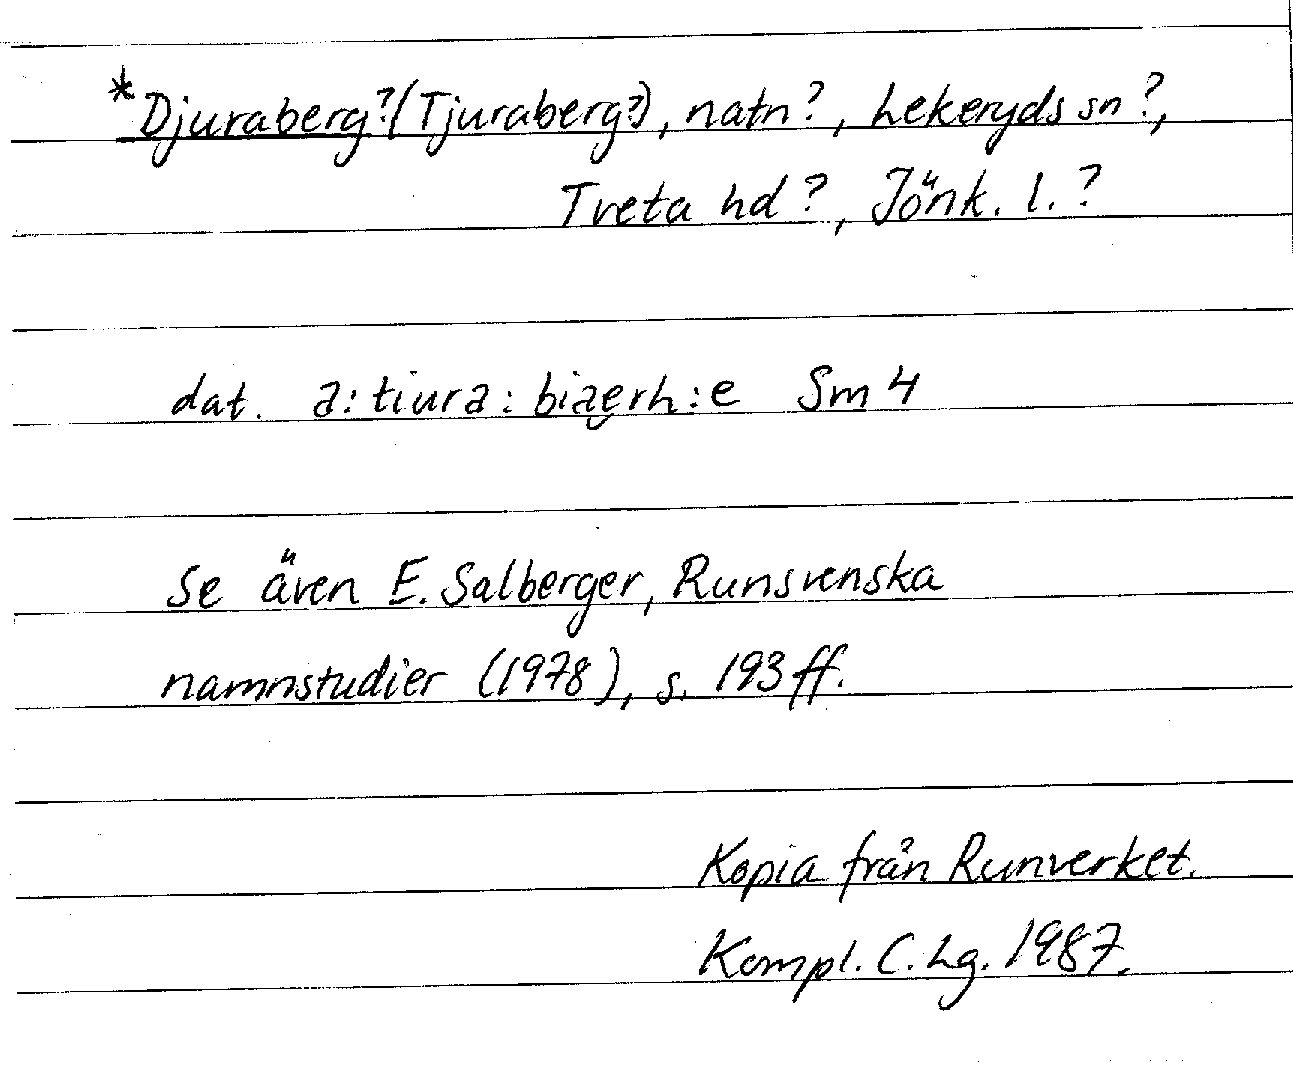 *Djuraberg? (Tjuraberg?), natn?, Lekeryds sn?,
Tveta hd?, Jönk. l.?
dat. a:tiura:biaerh:e Sm 4
Se även E. Salberger, Runsvenska
namnstudier (1978), s. 193 ff.
Kopia från Runverket.
Kompl. C. Lg. 1987.